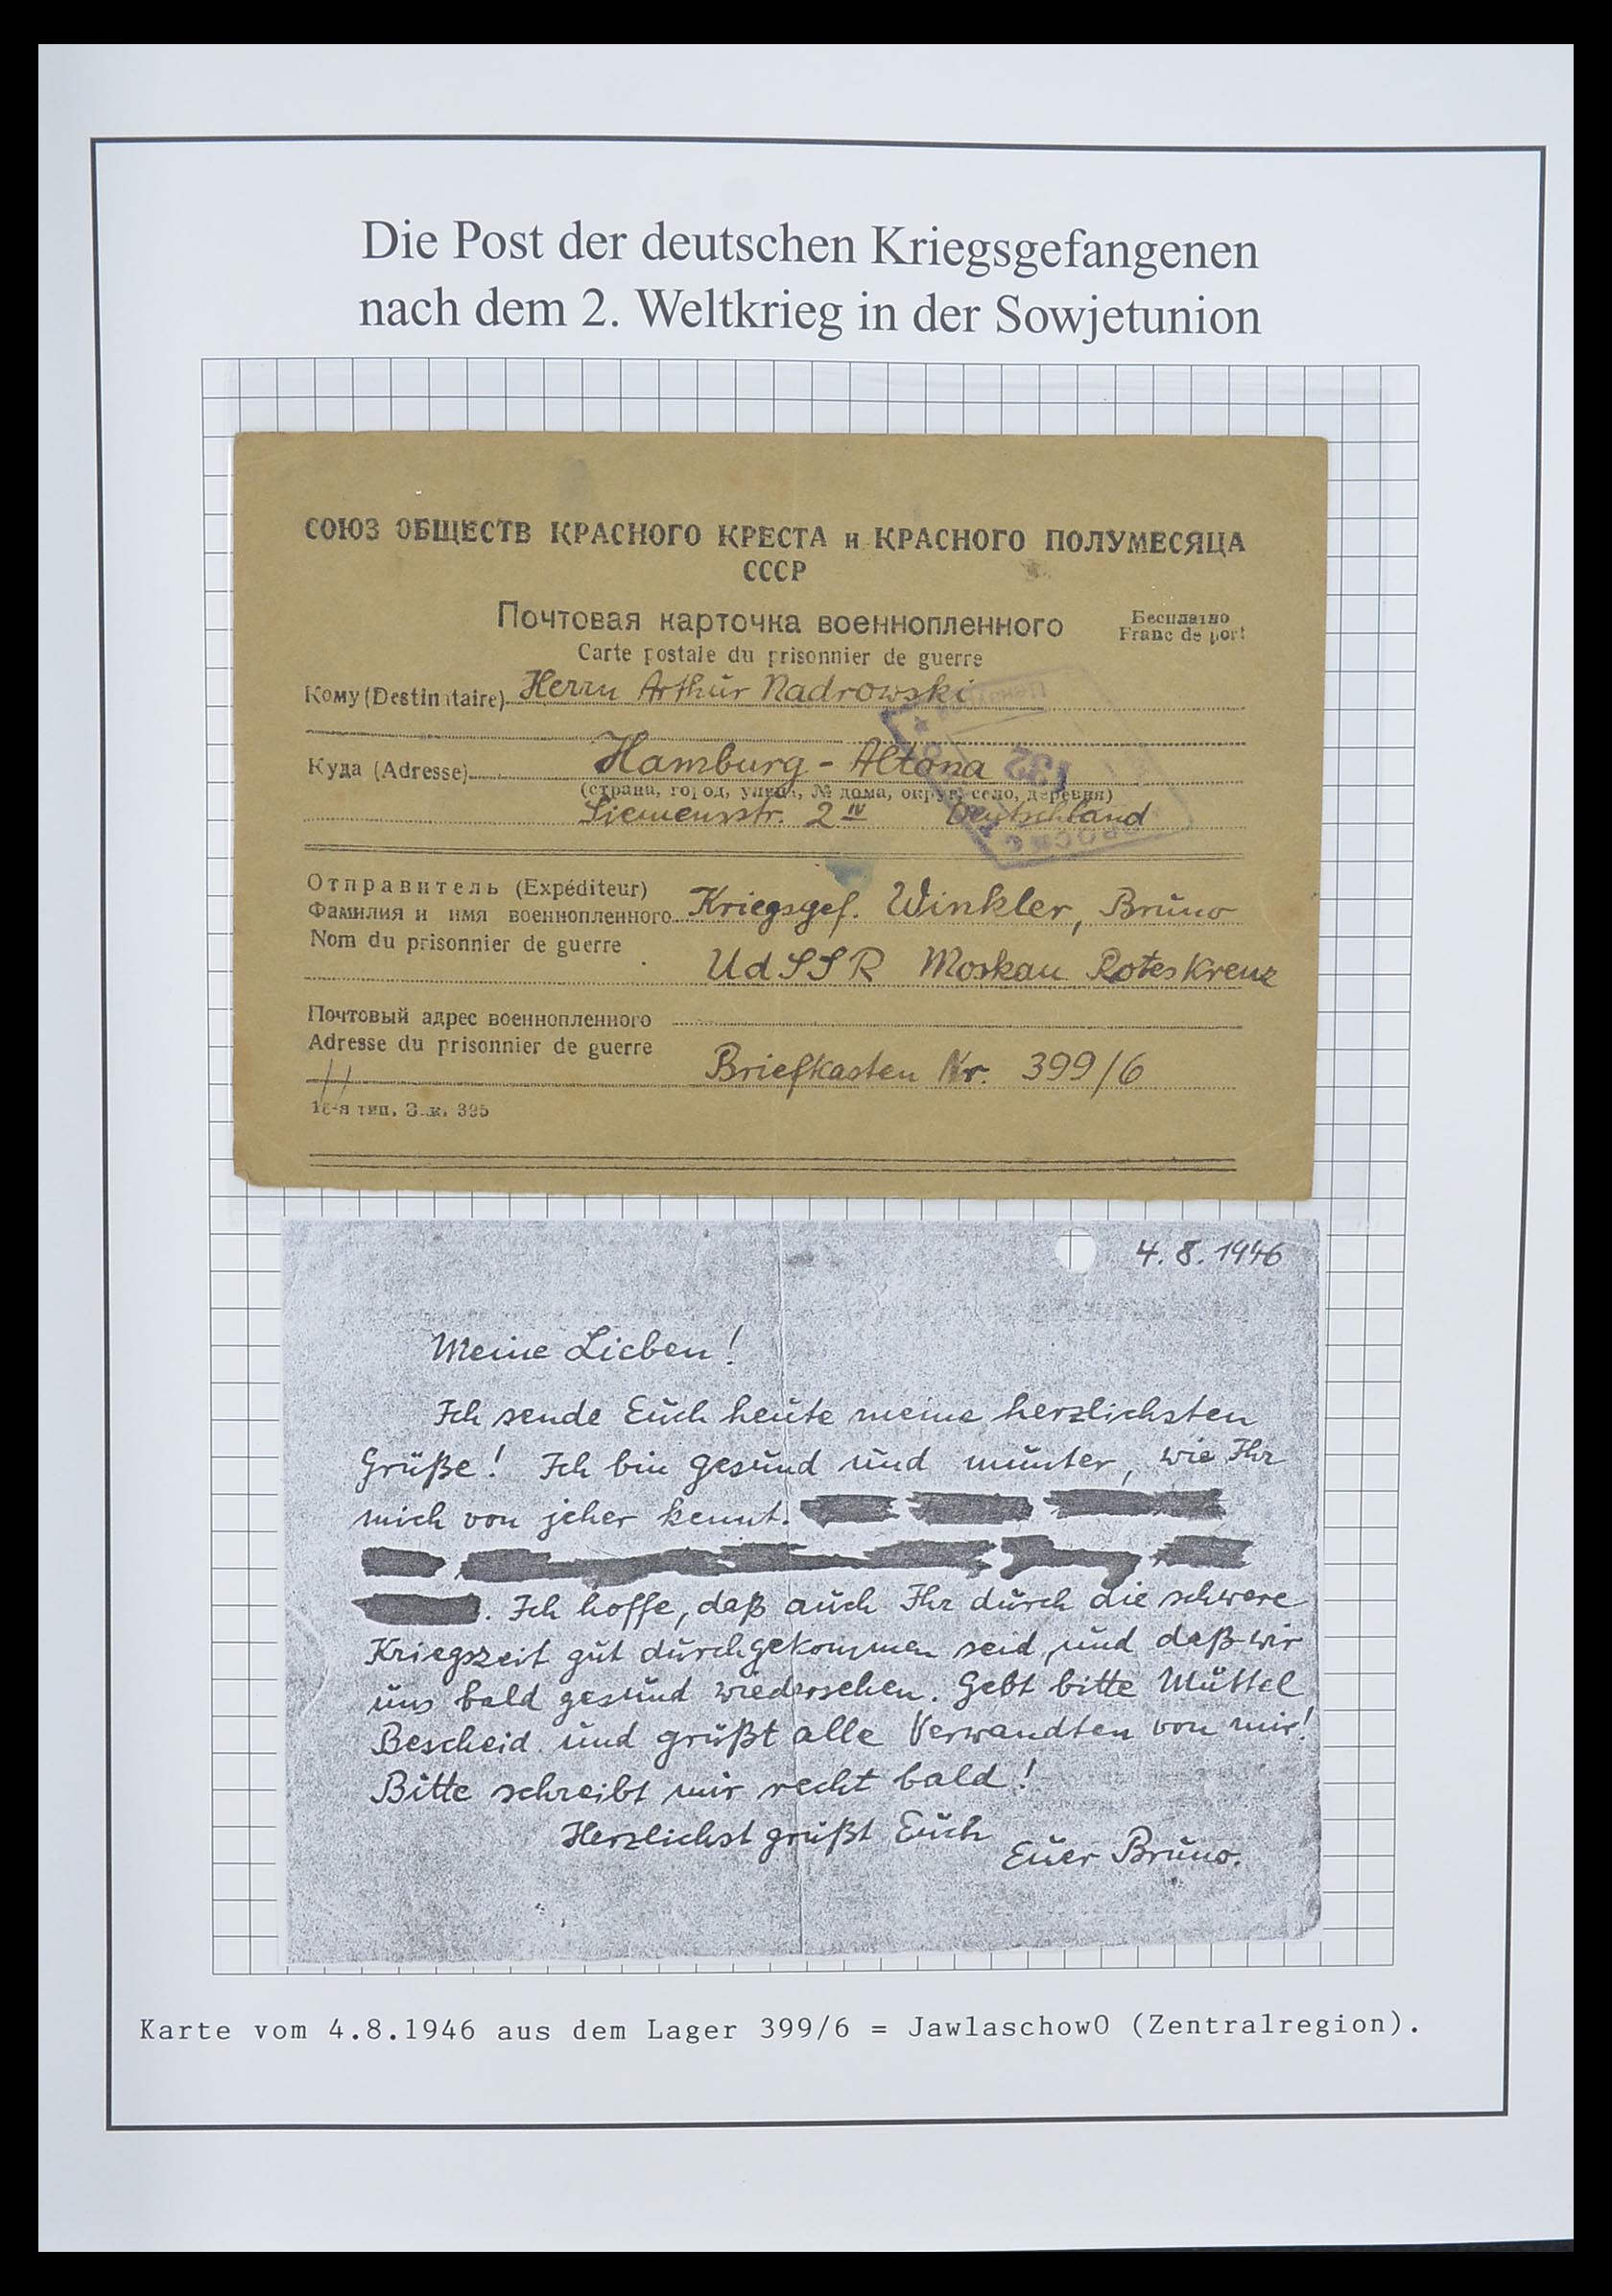 Die Post der deutschen Kriegsgefangenen
nach dem 2. Weltkrieg in der Sowjetunion
СОЮЗ ОБЩЕСТВ КРАСНОГО КРЕСТА и КРАСНОГО ПОЛУМЕСЯЦА
СССР
Почтовая карточка военнопленного
Бесплатно
Carte postale du prisonnier de guerre
Franc de port
Кому (Destinataire) Herrn Arthur Nadrowski
Куда (Adresse) Hamburg - Altona
(страна, город, улица, № дома, округ, село, деревня)
Siemensstr. 2 IV Deutschland
132
Отправитель (Expéditeur)
Фамилия и имя военнопленного Kriegsgef. Winkler, Bruno
Nom du prisonnier de guerre
UdSSR Moskau Rotes Kreuz
Почтовый адрес военнопленного
Adresse du prisonnier de guerre
Briefkasten Nr. 399/6
16-я тип. Зак. 395
4. 8. 1946
Meine Lieben!
Ich sende Euch heute meine herzlichsten
Grüße! Ich bin gesund und munter, wie Ihr
mich von jeher kennt.
. Ich hoffe, daß auch Ihr durch die schwere
Kriegszeit gut durchgekommen seid, und daß wir
uns bald gesund wiedersehen. Gebt bitte Muttel
Bescheid und grüßt alle Verwandten von mir!
Bitte schreibt mir recht bald!
Herzlichst grüßt Euch
Euer Bruno.
Karte vom 4.8.1946 aus dem Lager 399/6 = JawlaschowO (Zentralregion).